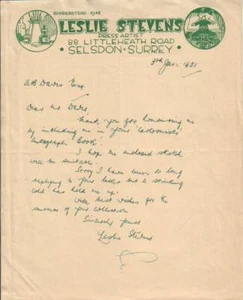 LESLIE STEVENS
PRESS ARTIST
88 LITTLEHEATH ROAD
SELSDON - SURREY
Jan. 1951
A B Davis Esq.
Dear Mr Davis,
Thank you for honouring me
by including me in your Cartoonists
Autograph Book.
I hope the enclosed sketch
will be suitable.
Sorry I have been so long
replying to your letter but a stinking
cold has held me up.
With best wishes for the
success of your collection
Sincerely yours
Leslie Stevens